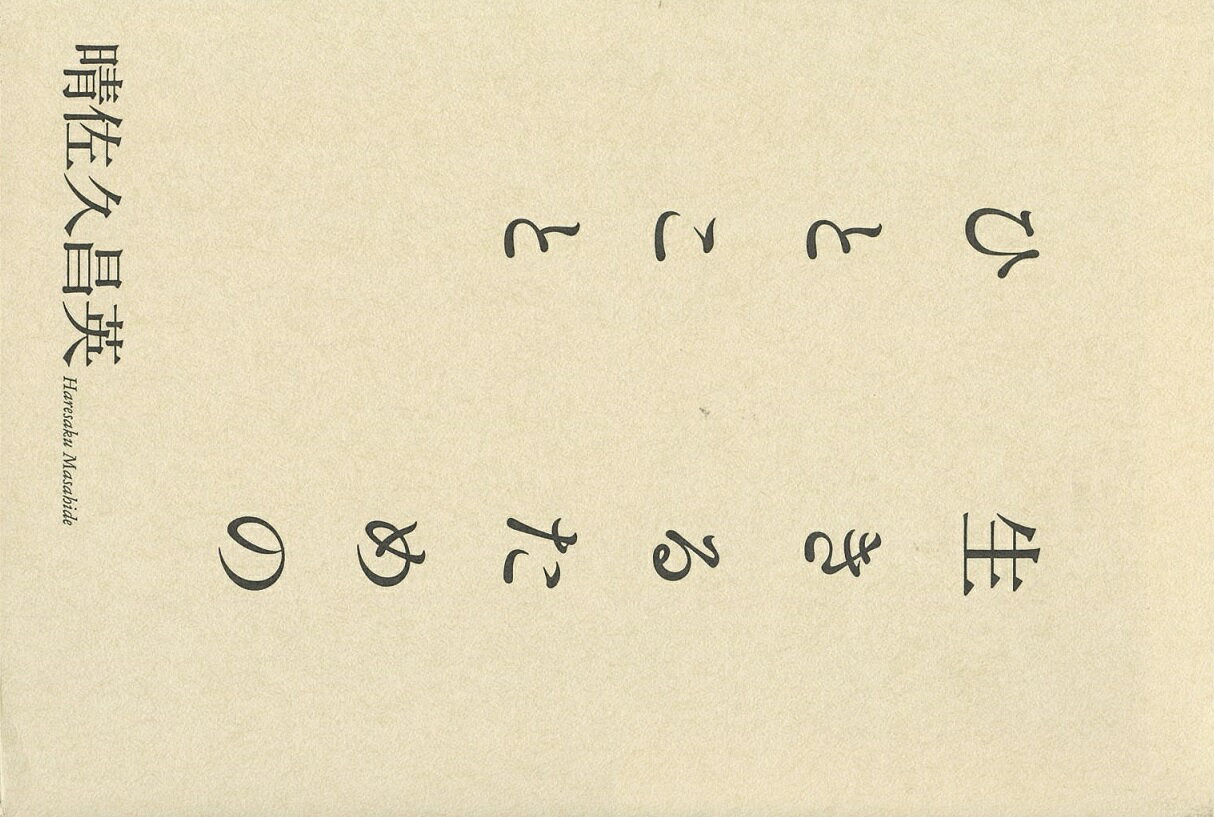 生きるための
ひとこと
晴佐久昌英
Haresaku Masahide